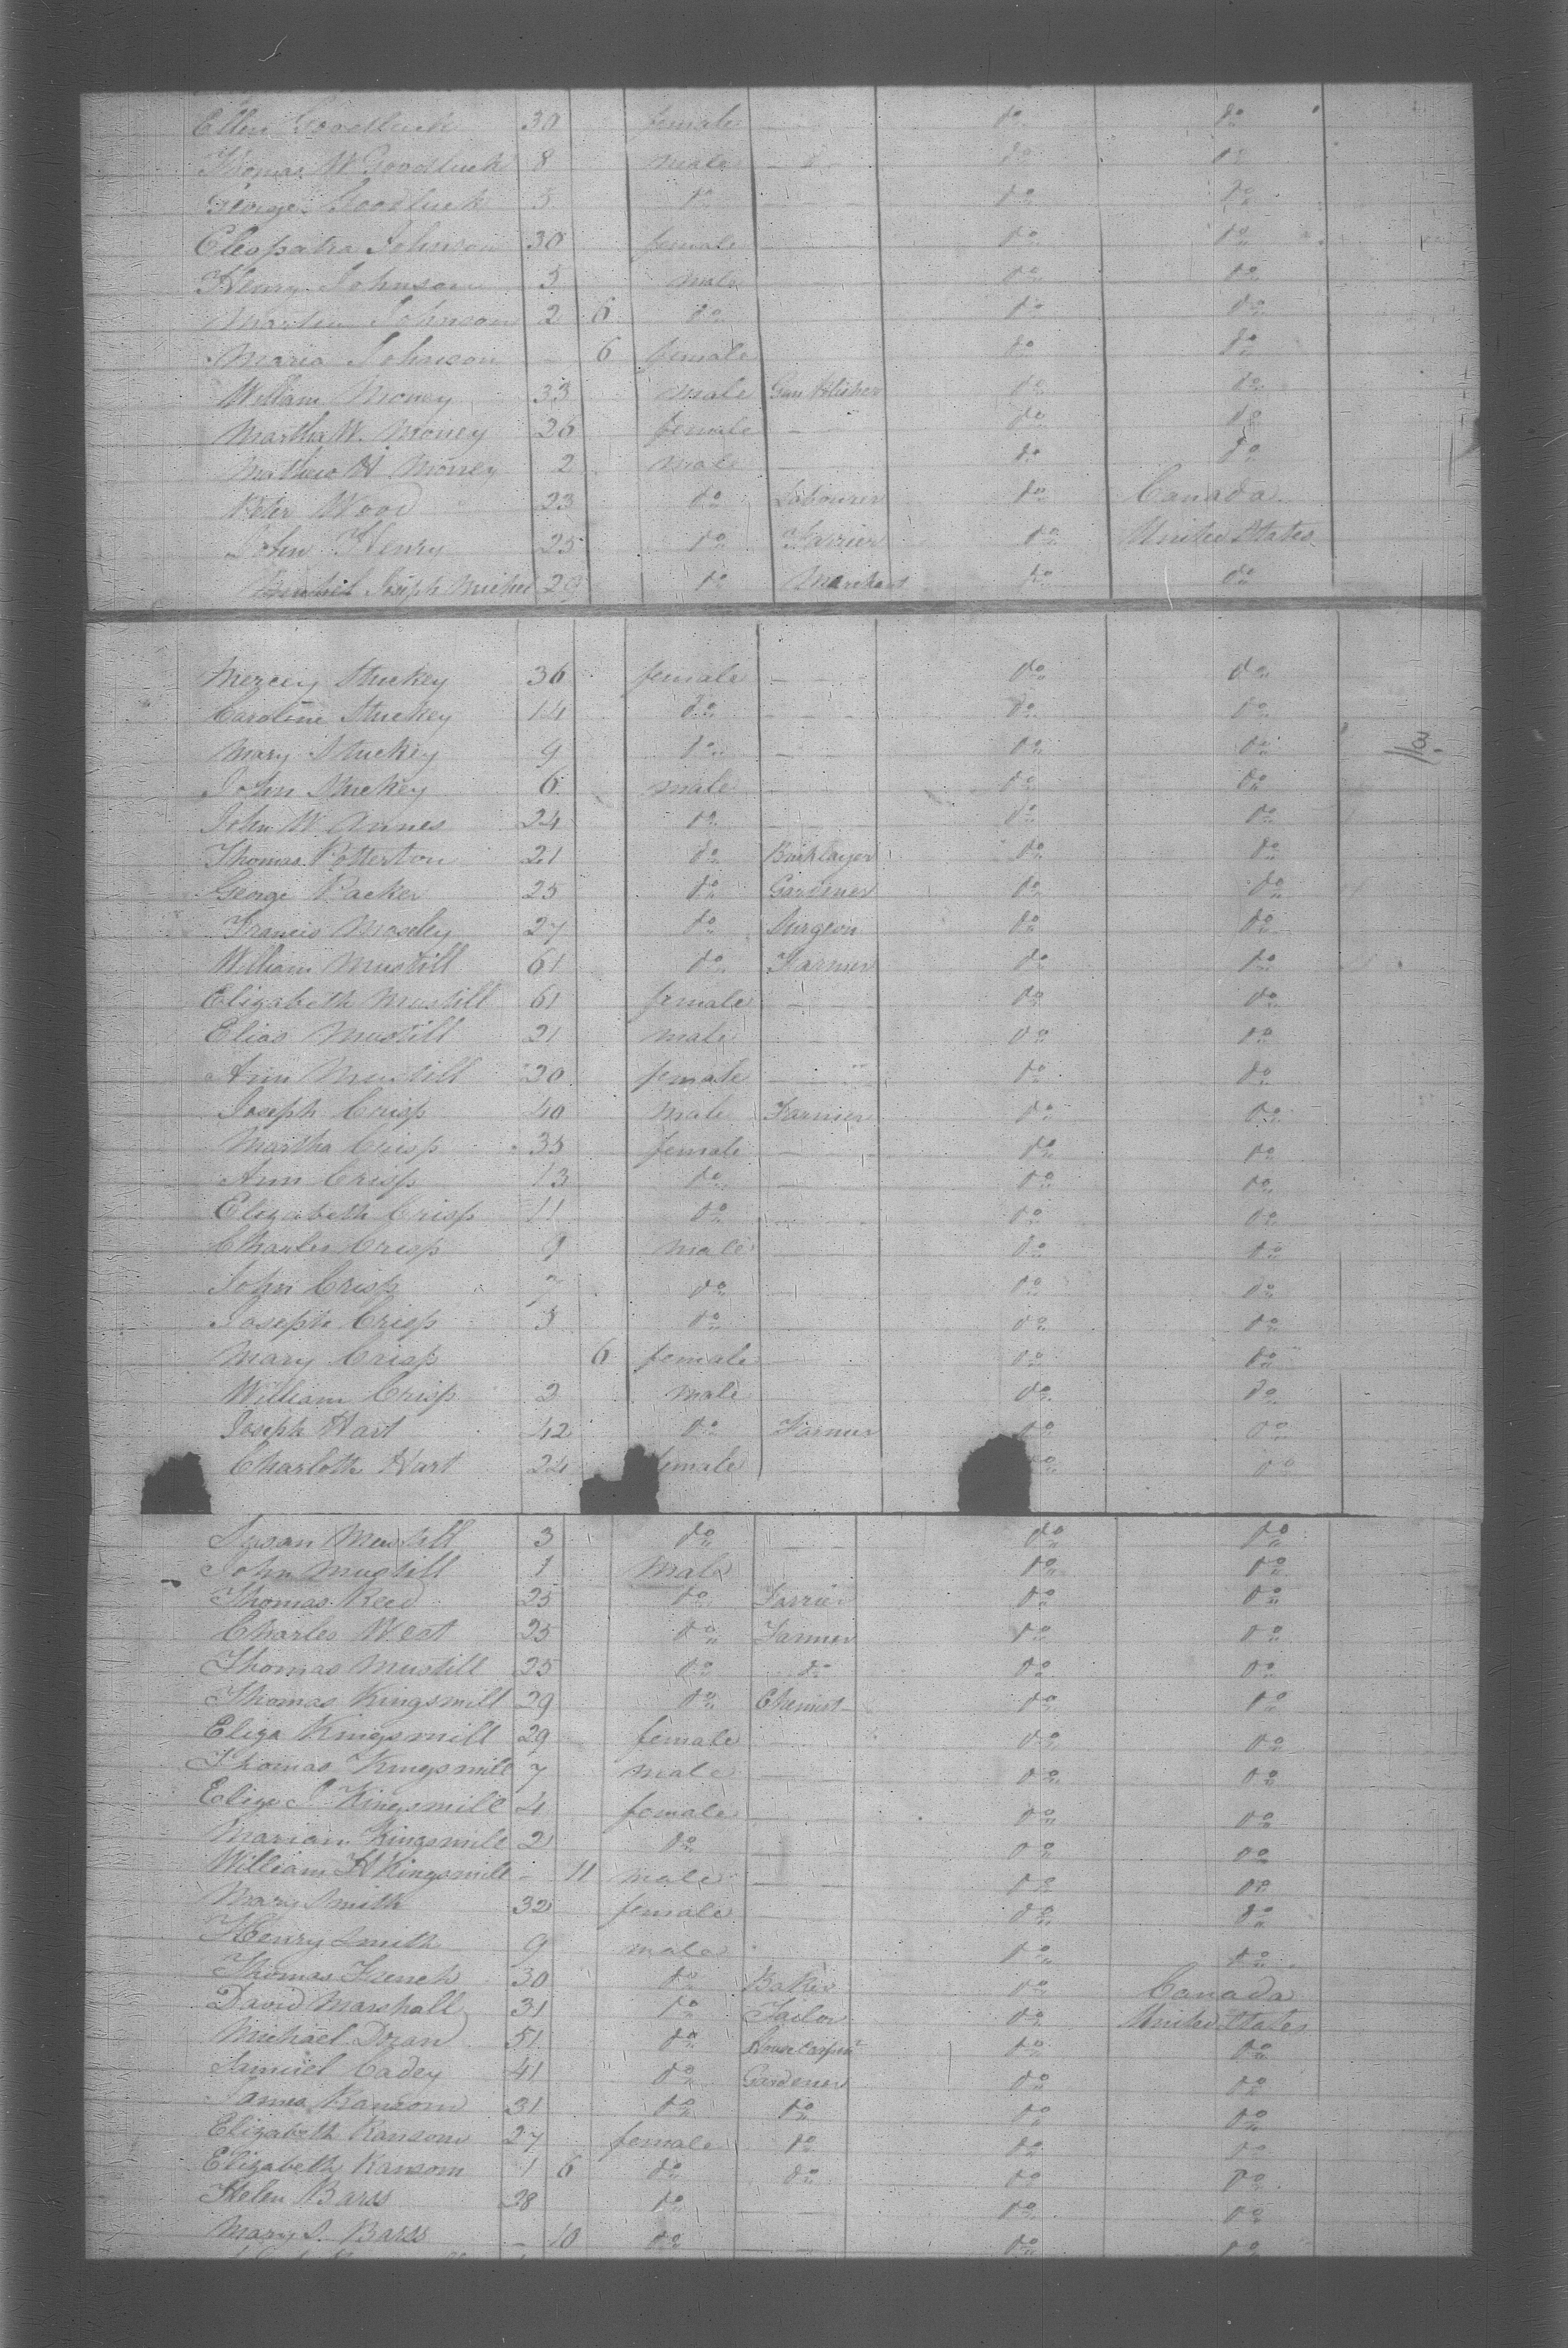 Ellen Goodluck 30 female do do
Thomas W Goodluck 8 male do do
George Goodluck 5 do do do
Cleopatra Johnson 30 female do do
Henry Johnson 5 male do do
Martin Johnson 2 6 do do do
Maria Johnson - 6 female do do
William Money 33 male do do
Martha W. Money 26 female do do
Mathew H Money 2 male do do
Peter Wood 23 do Labourer do Canada
John Henry 25 do Farrier do United States
Joseph 29 do Merchant do do
Mercey Stuckey 36 female do do
Caroline Stuckey 14 do do do
Mary Stuckey 9 do do do
John Stuckey 6 male do do
John W. Annes 24 do do do
Thomas Potterton 21 do Bricklayer do do
George Packer 25 do Gardiner do do
Francis Moseley 27 do Surgeon do do
William Mustill 61 do Farmer do do
Elizabeth Mustill 61 female do do
Elias Mustill 21 male do do
Ann Mustill 30 female do do
Joseph Crisp 40 male Farmer do do
Martha Crisp 35 female do do
Ann Crisp 13 do do do
Elizabeth Crisp 11 do do do
Charles Crisp 9 male do do
John Crisp 7 do do do
Joseph Crisp 5 do do do
Mary Crisp 6 female do do
William Crisp 2 male do do
Joseph Hart 42 do Farmer do do
Charlotte Hart 24 female do do
Susan Mustill 3 do do do
John Mustill 1 Male do do
Thomas Reed 25 do Farrier do do
Charles West 25 do Farmer do do
Thomas Mustill 25 do do do do
Thomas Kingsmill 29 do Chemist do do
Eliza Kingsmill 29 female do do
Thomas Kingsmill 7 male do do
Eliza J Kingsmill 4 female do do
Mariam Kingsmill 2 do do do
William H Kingsmill - 11 male do do
Mary Smith 32 female do do
Henry Smith 9 male do do
Thomas French 30 do Baker do Canada
David Marshall 31 do Tailor do United States
Michael Doran 51 do House Carpenr do do
Samuel Cadey 41 do Gardener do do
James Ransom 31 do do do do
Elizabeth Ransom 27 female do do do
Elizabeth Ransom 1 6 do do do do
Helen Barss 28 do do do
Mary S. Barss - 10 do do do